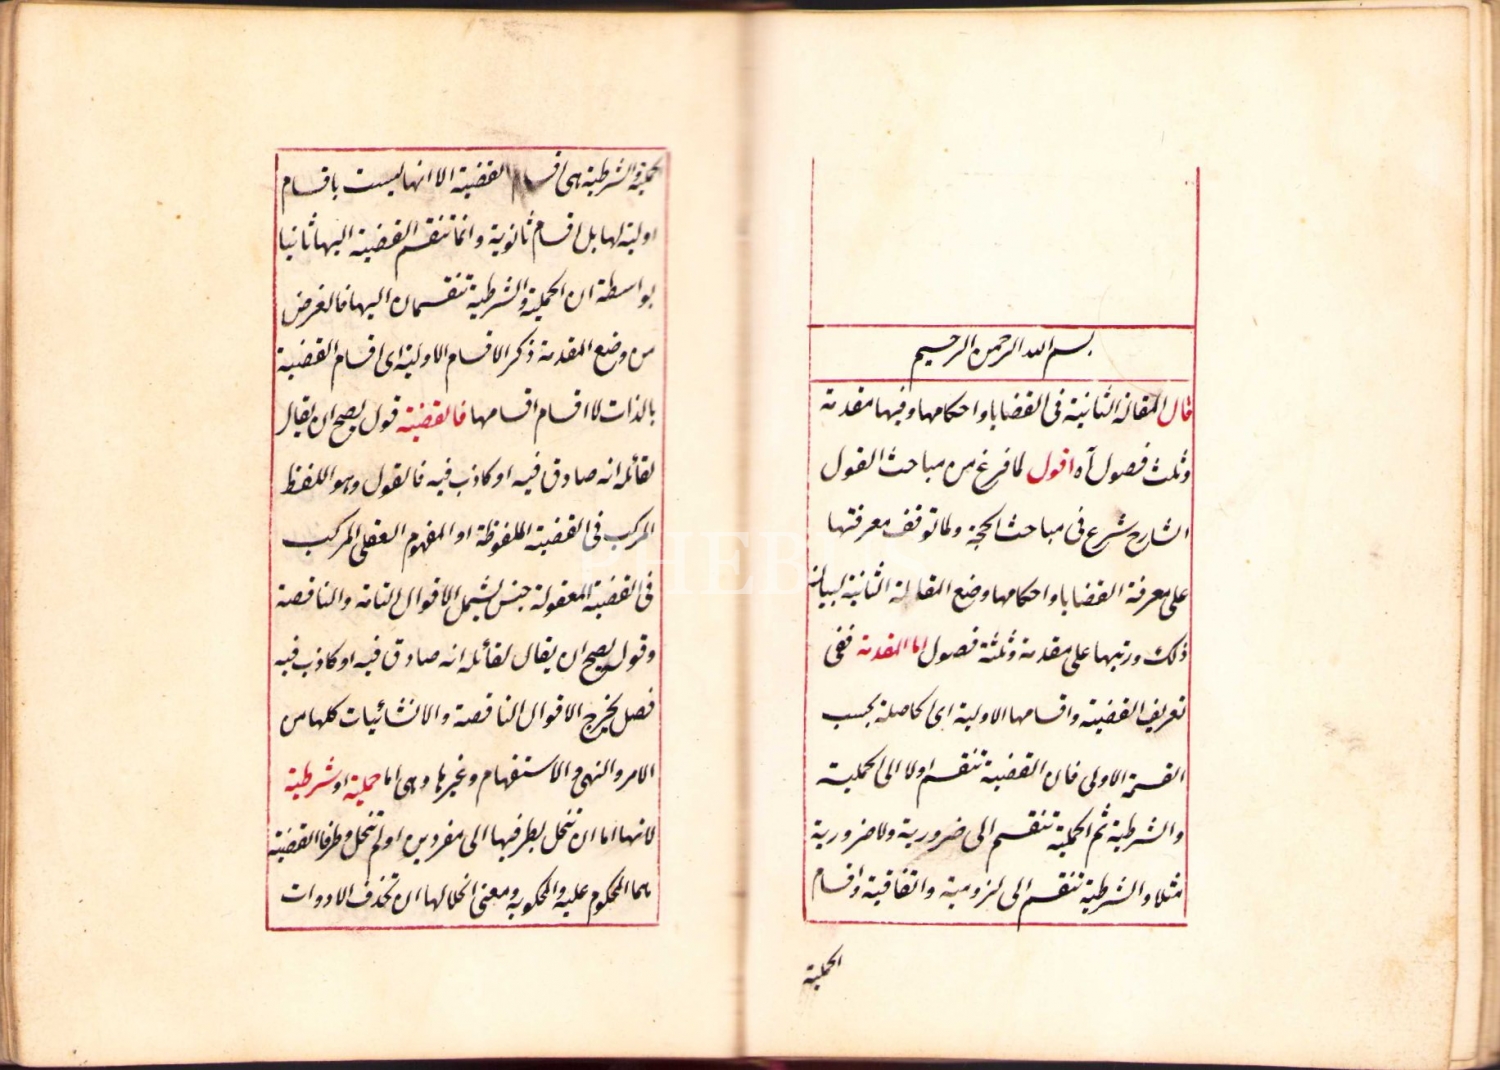 بسم الله الرحمن الرحيم
قال المقالة الثانية فى القضايا واحكامها وفيها مقدمة
وثلث فصول آه اقول لما فرغ من مباحث القول
الشارح شرع فى مباحث الحجة ولما توقف معرفتها
على معرفة القضايا واحكامها وضع المقالة الثانية لبيان
ذلك ورتبها على مقدمة وثلثة فصول اما المقدمة ففى
تعريف القضية واقسامها الاولية اى الحاصلة بحسب
القسمة الاولى فان القضية تنقسم اولا الى الحملية
والشرطية ثم الحملية تنقسم الى ضرورية ولا ضرورية
مثلا والشرطية تنقسم الى لزومية واتفاقية واقسام
الحملية
الحملية والشرطية هى اقسام القضية الا انها ليست باقسام
اولية لها بل اقسام ثانوية وانما تنقسم القضية اليها ثانيا
بواسطة ان الحملية والشرطية تنقسمان اليها فالغرض
من وضع المقدمة ذكر الاقسام الاولية اى اقسام القضية
بالذات لا اقسام اقسامها فالقضية قول يصح ان يقال
لقائله انه صادق فيه او كاذب فيه فالقول وهو اللفظ
المركب فى القضية الملفوظة او المفهوم العقلى المركب
فى القضية المعقولة جنس يشمل الاقوال التامة والناقصة
وقوله يصح ان يقال لقائله انه صادق فيه او كاذب فيه
فصل يخرج الاقوال الناقصة والانشائيات كلها من
الامر والنهى والاستفهام وغيرها وهى اما حملية او شرطية
لانها اما ان تنحل بطرفيها الى مفردين او لم تنحل وطرفا القضية
هما المحكوم عليه والمحكوم به ومعنى انحلالها ان تحذف الادوات
PHEBUS